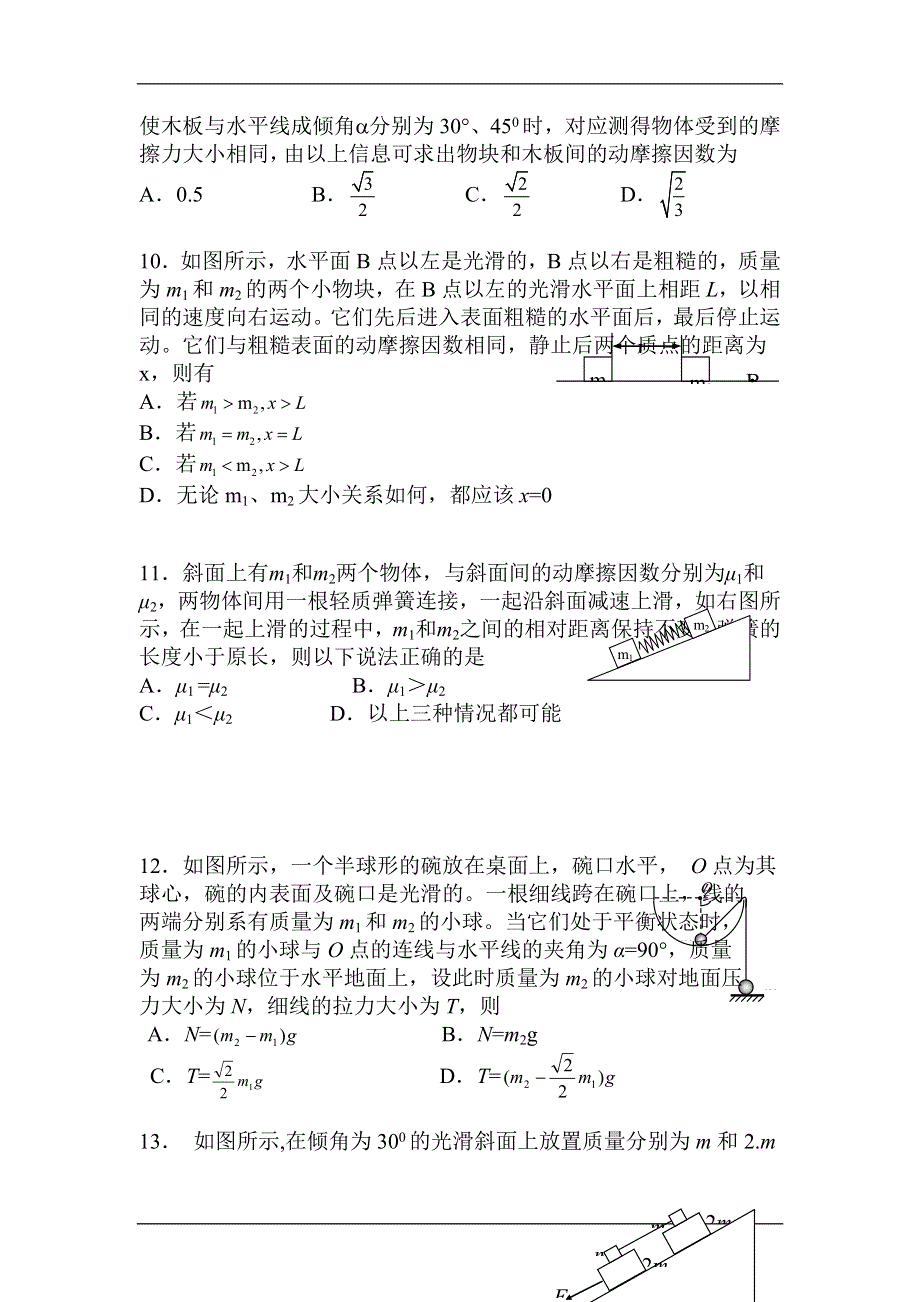 使木板与水平线成倾角α分别为 30°、45⁰ 时，对应测得物体受到的摩
擦力大小相同，由以上信息可求出物块和木板间的动摩擦因数为
A．0.5 B．√3/2 C．√2/2 D．√(2/3)
10．如图所示，水平面 B 点以左是光滑的，B 点以右是粗糙的，质量
为 m₁ 和 m₂ 的两个小物块，在 B 点以左的光滑水平面上相距 L，以相
同的速度向右运动。它们先后进入表面粗糙的水平面后，最后停止运
动。它们与粗糙表面的动摩擦因数相同，静止后两个质点的距离为
x，则有
A．若 m₁ > m₂, x > L
B．若 m₁ = m₂, x = L
C．若 m₁ < m₂, x > L
D．无论 m₁、m₂ 大小关系如何，都应该 x=0
11．斜面上有m₁和m₂两个物体，与斜面间的动摩擦因数分别为μ₁和
μ₂，两物体间用一根轻质弹簧连接，一起沿斜面减速上滑，如右图所
示，在一起上滑的过程中，m₁和m₂之间的相对距离保持不 的
长度小于原长，则以下说法正确的是
m₂
m₁
A．μ₁ =μ₂ B．μ₁＞μ₂
C．μ₁＜μ₂ D．以上三种情况都可能
12．如图所示，一个半球形的碗放在桌面上，碗口水平， O 点为其
球心，碗的内表面及碗口是光滑的。一根细线跨在碗口上，线的
两端分别系有质量为 m₁ 和 m₂ 的小球。当它们处于平衡状态时，
质量为 m₁ 的小球与 O 点的连线与水平线的夹角为 α=90°，质量
为 m₂ 的小球位于水平地面上，设此时质量为 m₂ 的小球对地面压
力大小为 N，细线的拉力大小为 T，则
A．N=(m₂ − m₁)g B．N=m₂g
C．T=√2/2 m₁g D．T=(m₂ − √2/2 m₁)g
13． 如图所示,在倾角为 30⁰ 的光滑斜面上放置质量分别为 m 和 2.m
2m
2m
F